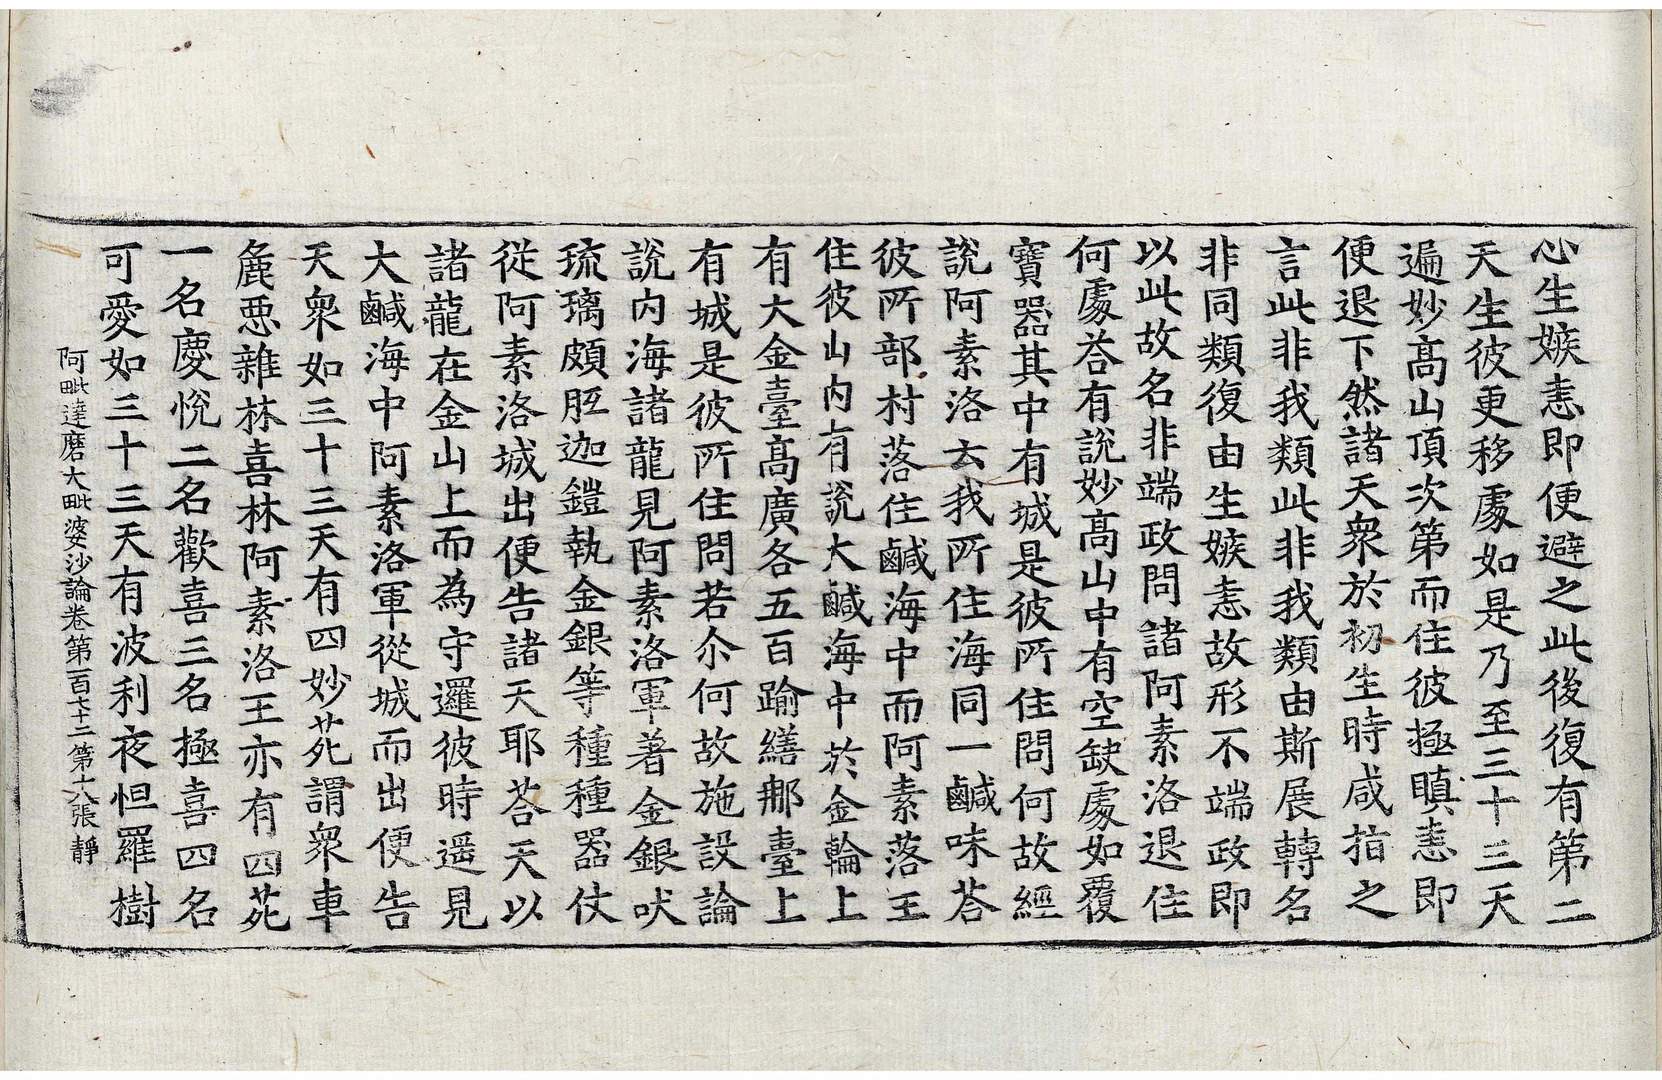 心生嫉恚即便避之此後復有第二
天生彼更移處如是乃至三十三天
遍妙高山頂次第而住彼極瞋恚即
便退下然諸天衆於初生時咸指之
言此非我類此非我類由斯展轉名
非同類復由生嫉恚故形不端政即
以此故名非端政問諸阿素洛退住
何處荅有說妙高山中有空缺處如覆
寶器其中有城是彼所住問何故經
說阿素洛云我所住海同一鹹味荅
彼所部村落住鹹海中而阿素落王
住彼山內有說大鹹海中於金輪上
有大金臺高廣各五百踰繕那臺上
有城是彼所住問若尒何故施設論
說內海諸龍見阿素洛軍著金銀吠
琉璃頗胝迦鎧執金銀等種種器仗
從阿素洛城出便告諸天耶荅天以
諸龍在金山上而為守邏彼時遥見
大鹹海中阿素洛軍從城而出便告
天衆如三十三天有四妙苑謂衆車
麁惡雜林喜林阿素洛王亦有四苑
一名慶悅二名歡喜三名極喜四名
可愛如三十三天有波利夜怛羅樹
阿毗達磨大毗婆沙論卷第一百七十二 第十八張 靜